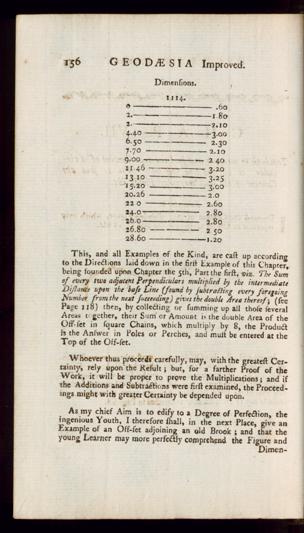 156 GEODÆSIA Improved.
Dimensions.
1114.
0 .60
2. 1.80
2. 2.10
4.40 3.00
6.50 2.30
7.70 2.10
9.00 2 40
11 46 3.20
13.10 3.25
15.20 3.00
20.26 2.0
22 0 2.60
24.0 2.80
26.0 2.80
26.80 2 50
28.60 1.20
This, and all Examples of the Kind, are cast up according
to the Directions laid down in the first Example of this Chapter,
being founded upon Chapter the 5th, Part the first, viz. The Sum
of every two adjacent Perpendiculars multiplied by the intermediate
Distance upon the base Line (found by subtracting every foregoing
Number from the next succeeding) gives the double Area thereof; (see
Page 118) then, by collecting or summing up all those several
Areas together, their Sum or Amount is the double Area of the
Off-set in square Chains, which multiply by 8, the Product
is the Answer in Poles or Perches, and must be entered at the
Top of the Off-set.
Whoever thus proceeds carefully, may, with the greatest Cer-
tainty, rely upon the Result; but, for a farther Proof of the
Work, it will be proper to prove the Multiplications; and if
the Additions and Subtractions were first examined, the Proceed-
ings might with greater Certainty be depended upon.
As my chief Aim is to edify to a Degree of Perfection, the
ingenious Youth, I therefore shall, in the next Place, give an
Example of an Off-set adjoining an old Brook; and that the
young Learner may more perfectly comprehend the Figure and
Dimen-